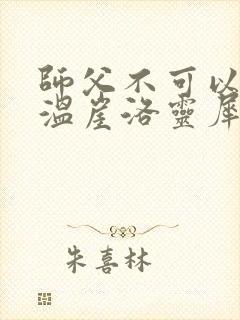 師父不可以
溫崖洛靈犀
朱喜林